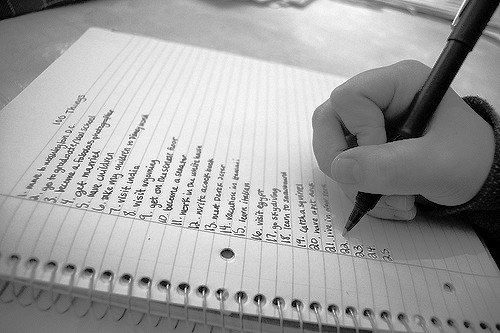 100 Things
1. move to washington D.C.
2. go to graduate/law school
3. become a famous photographer
4. get married
5. have children
6. take my children to disney world
7. visit India
8. visit everyday
9. get on the senate floor
10. become a senator
11. work in the white house
12. write a cook book
13. meet Derek Jeter
14. vacation in Hawaii
15. learn Italian
16. visit Egypt
17. go skydiving
18. learn to snowboard
19.
20. have a pet
21. live in
22
23
24
25